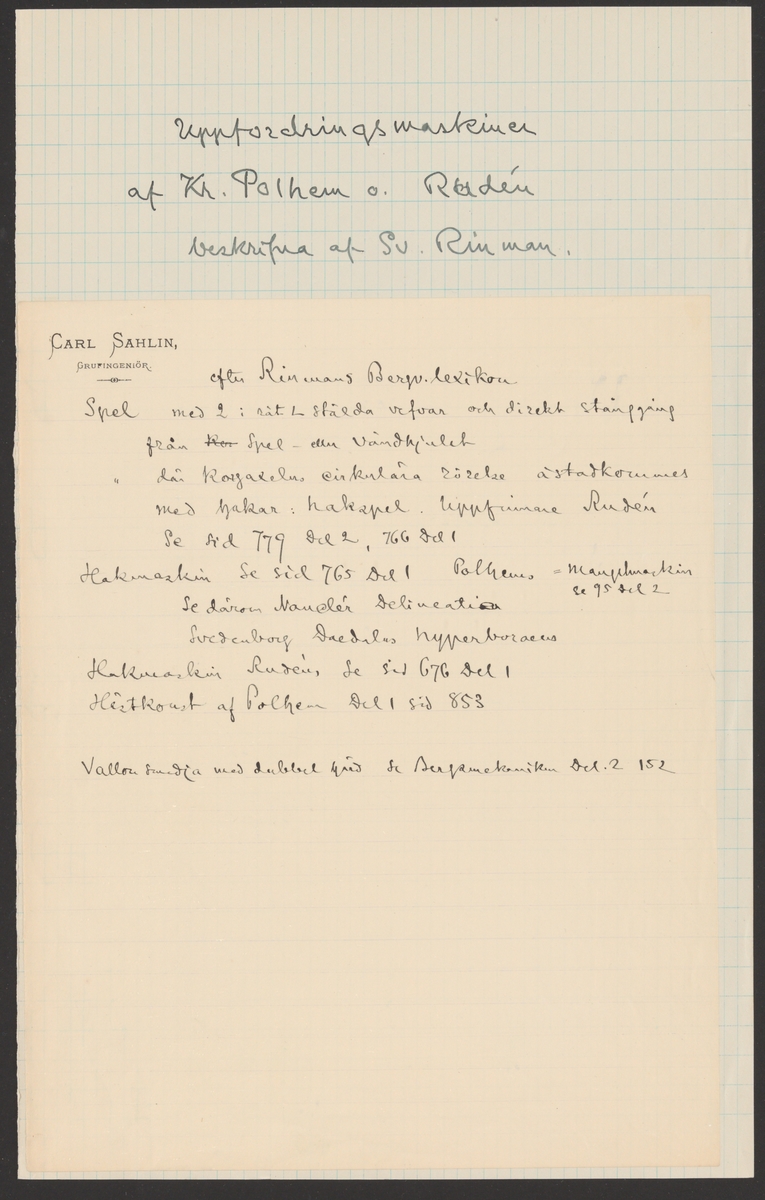 Uppfordringsmaskiner
af Kr. Polhem o. Rudén
beskrifna af Sv. Rinman.
CARL SAHLIN,
GRUFINGENIÖR.
efter Rinmans Bergv. lexikon
Spel med 2 : rät L stälda vefvar och direkt stånggång
från Kor Spel - eller Vändhjulet
" där korgaxelns cirkulära rörelse åstadkommes
med hakar : hakspel. Uppfinnare Rudén
Se sid 779 Del 2, 766 Del 1
Hakmaskin Se sid 765 Del 1 Polhems =
se 95 Del 2
Se därom Naucler Delineation
Svedenborg Daedalus hyperboraeus
Hakmaskin Rudéns Se sid 676 Del 1
Hästkonst af Polhem Del 1 sid 853
Vallon smedja med dubbel härd se Bergsmekaniken Del. 2 152